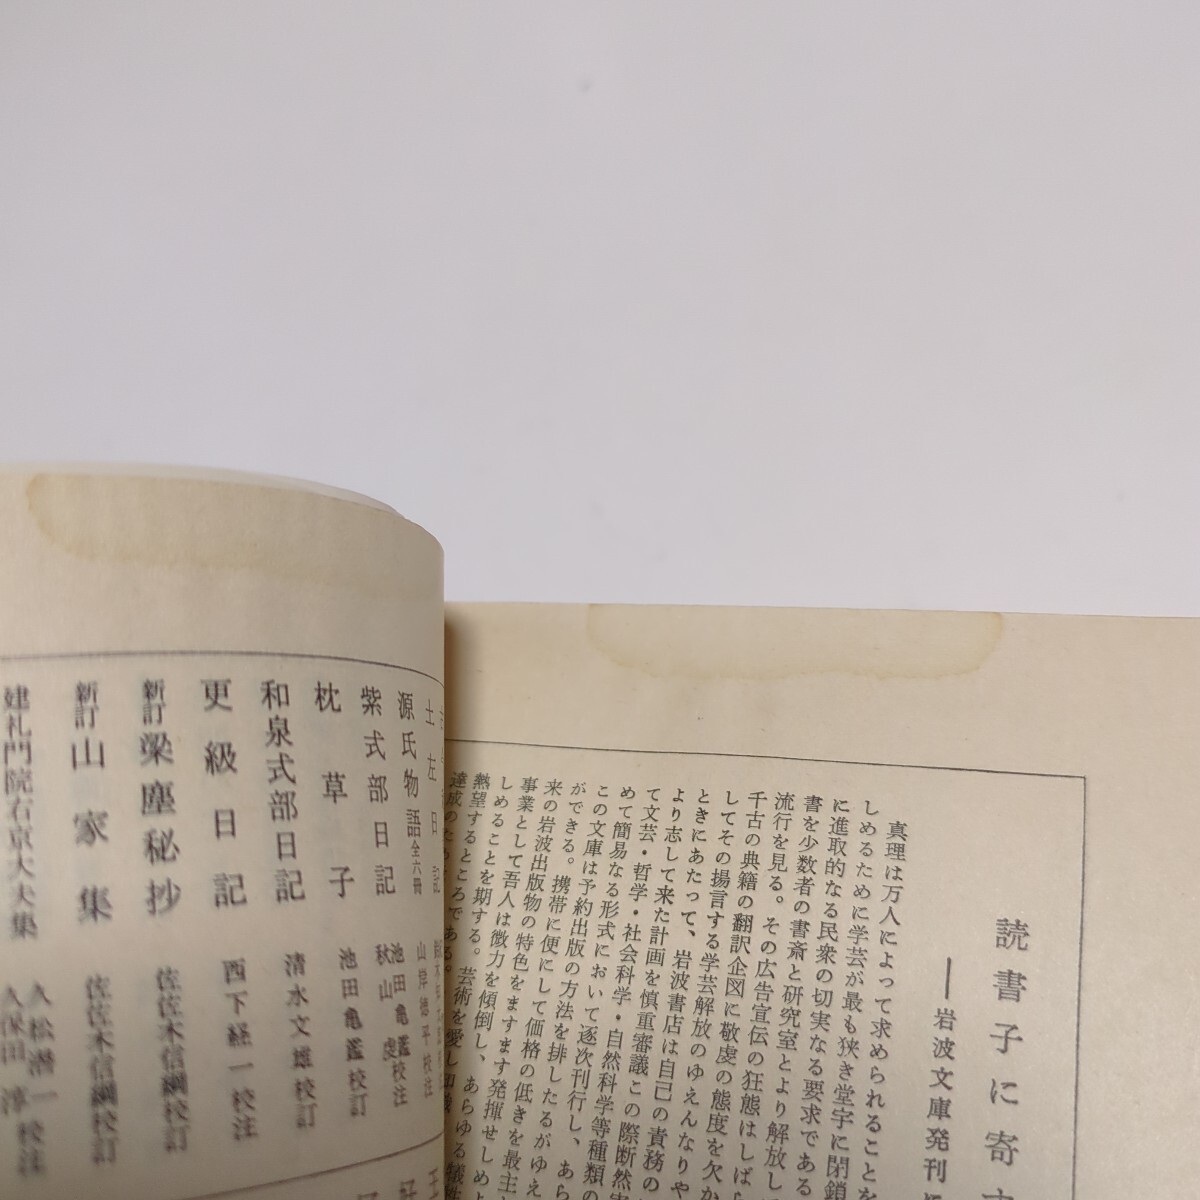 読書子に寄
――岩波文庫発刊に
真理は万人によって求められることを
しめるために学芸が最も狭き堂宇に閉鎖
に進取的なる民衆の切実なる要求である
書を少数者の書斎と研究室とより解放し
流行を見る。その広告宣伝の狂態はしばら
千古の典籍の翻訳企図に敬虔の態度を欠か
してその揚言する学芸解放のゆえんなりや
ときにあたって、岩波書店は自己の責務の
より志して来た計画を慎重審議この際断然実
て文芸・哲学・社会科学・自然科学等種類の
めて簡易なる形式において逐次刊行し、あら
この文庫は予約出版の方法を排したるがゆえ
ができる。携帯に便にして価格の低きを最主
来の岩波出版物の特色をますます発揮せしめよ
事業として吾人は微力を傾倒し、あらゆる犠牲
しめることを期する。芸術を愛し知識
熱望するところである。
達成のため
土左日記
源氏物語 全六冊 山岸徳平校注
紫式部日記 池田亀鑑 秋山虔校注
枕草子 池田亀鑑校訂
和泉式部日記 清水文雄校訂
更級日記 西下経一校注
新訂 梁塵秘抄 佐佐木信綱校訂
新訂 山家集 佐佐木信綱校訂
建礼門院右京大夫集 久松潜一 久保田淳校注